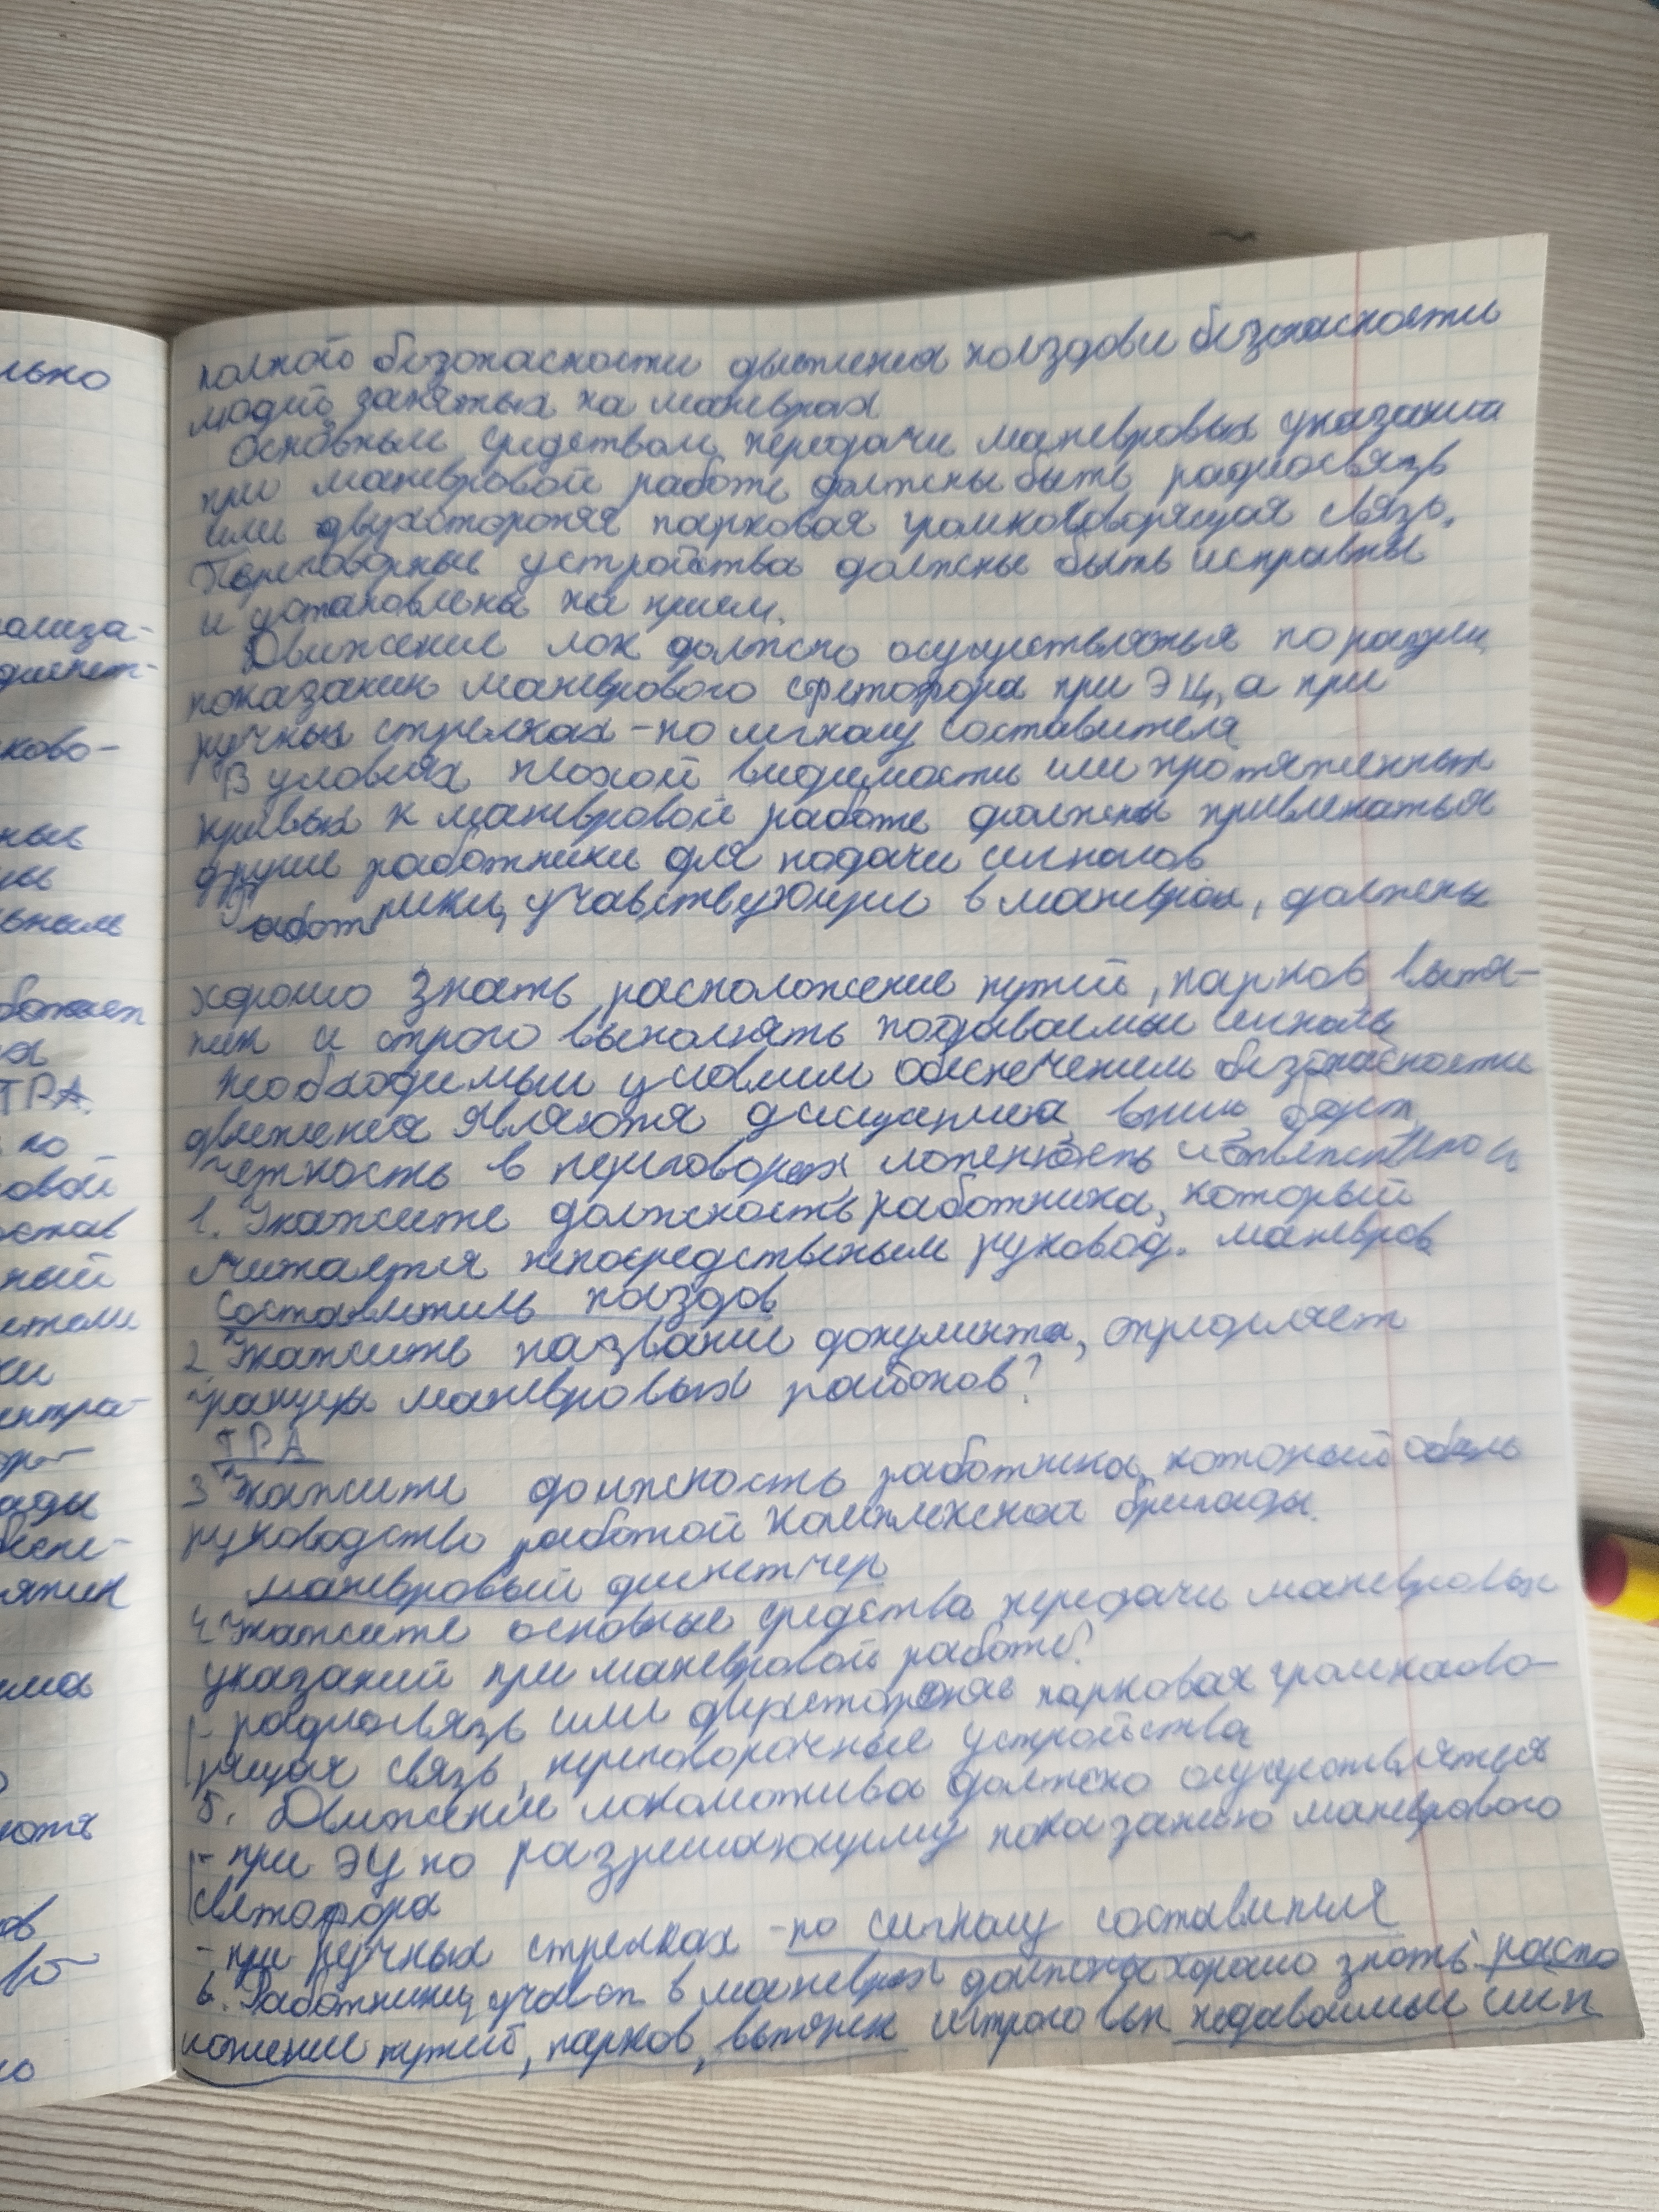 лько
ализа-
диспет-
ково-
ные
ны
ьным
ботает
ТРА.
по
овой
остав
ный
ки
ентра-
ор-
ады
яния
ма
ются
ов
но
полной безопасности движения поездов и безопасности
людей занятых на маневрах
Основным средством передачи маневровых указаний
при маневровой работе должны быть радиосвязь
или двухстороняя парковая громкоговорящая связь.
Переговорные устройства должны быть исправны
и установлены на прием.
Движение лок должно осуществляться по разреш
показанию маневрового светофора при ЭЦ, а при
ручных стрелках - по сигналу составителя
В условиях плохой видимости или протяженных
кривых к маневровой работе должны привлекаться
другие работники для подачи сигналов
Работники, учавствующие в маневрах, должны
хорошо знать расположение путей, парков вытя-
жек и строго выполнять подаваемые сигналы
Необходимым условием обеспечением безопасности
движения являются дисциплина, вним, бдит,
четкость в переговорах
1. Укажите должность работника, который
считается непосредственным руковод. маневров
Составитель поездов
2 Укажить название документа, определяет
границы маневровых районов?
ТРА
3 Укажите должность работника, который
руководство работой комплексной бригады.
маневровый диспетчер
4 Укажите основные средства передачи маневровых
указаний при маневровой работе?
- радиосвязь или двухстороняя парковая громкогово-
рящая связь, переговорочные устройства
5. Движение локомотива должно осуществляться
- при ЭЦ по разрешающему показанию маневрового
светофора
- при ручных стрелках - по сигналу составителя
6. Работники, участ в маневрах должны хорошо знать распо
ложение путей, парков, вытяжек и строго вып подаваемые сигн